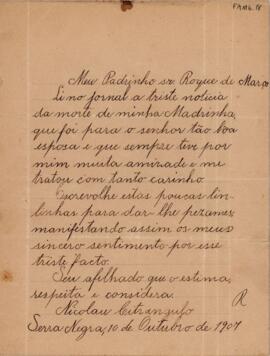 FAMG.18
Meu Padrinho sr. Roque de Março
Li no jornal a triste noticia
da morte de minha Madrinha,
que foi para o senhor tão boa
esposa e que sempre teve por
mim muita amizade e me
tratou com tanto carinho.
Escrevolhe estas poucas li-
nhas para dar-lhe pezames,
manifestando assim os meus
sincero sentimento por esse
triste facto.
Seu afilhado que o estima,
respeita e considera.
Nicolau
R
Serra Negra, 10 de Outubro de 1907